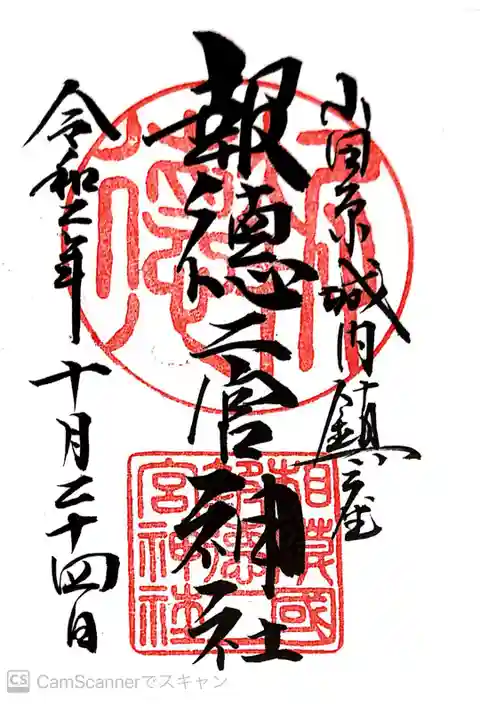 小田原城内鎮座
報徳二宮神社
令和二年十月二十四日
相模國
報徳二
宮神社
CS CamScannerでスキャン